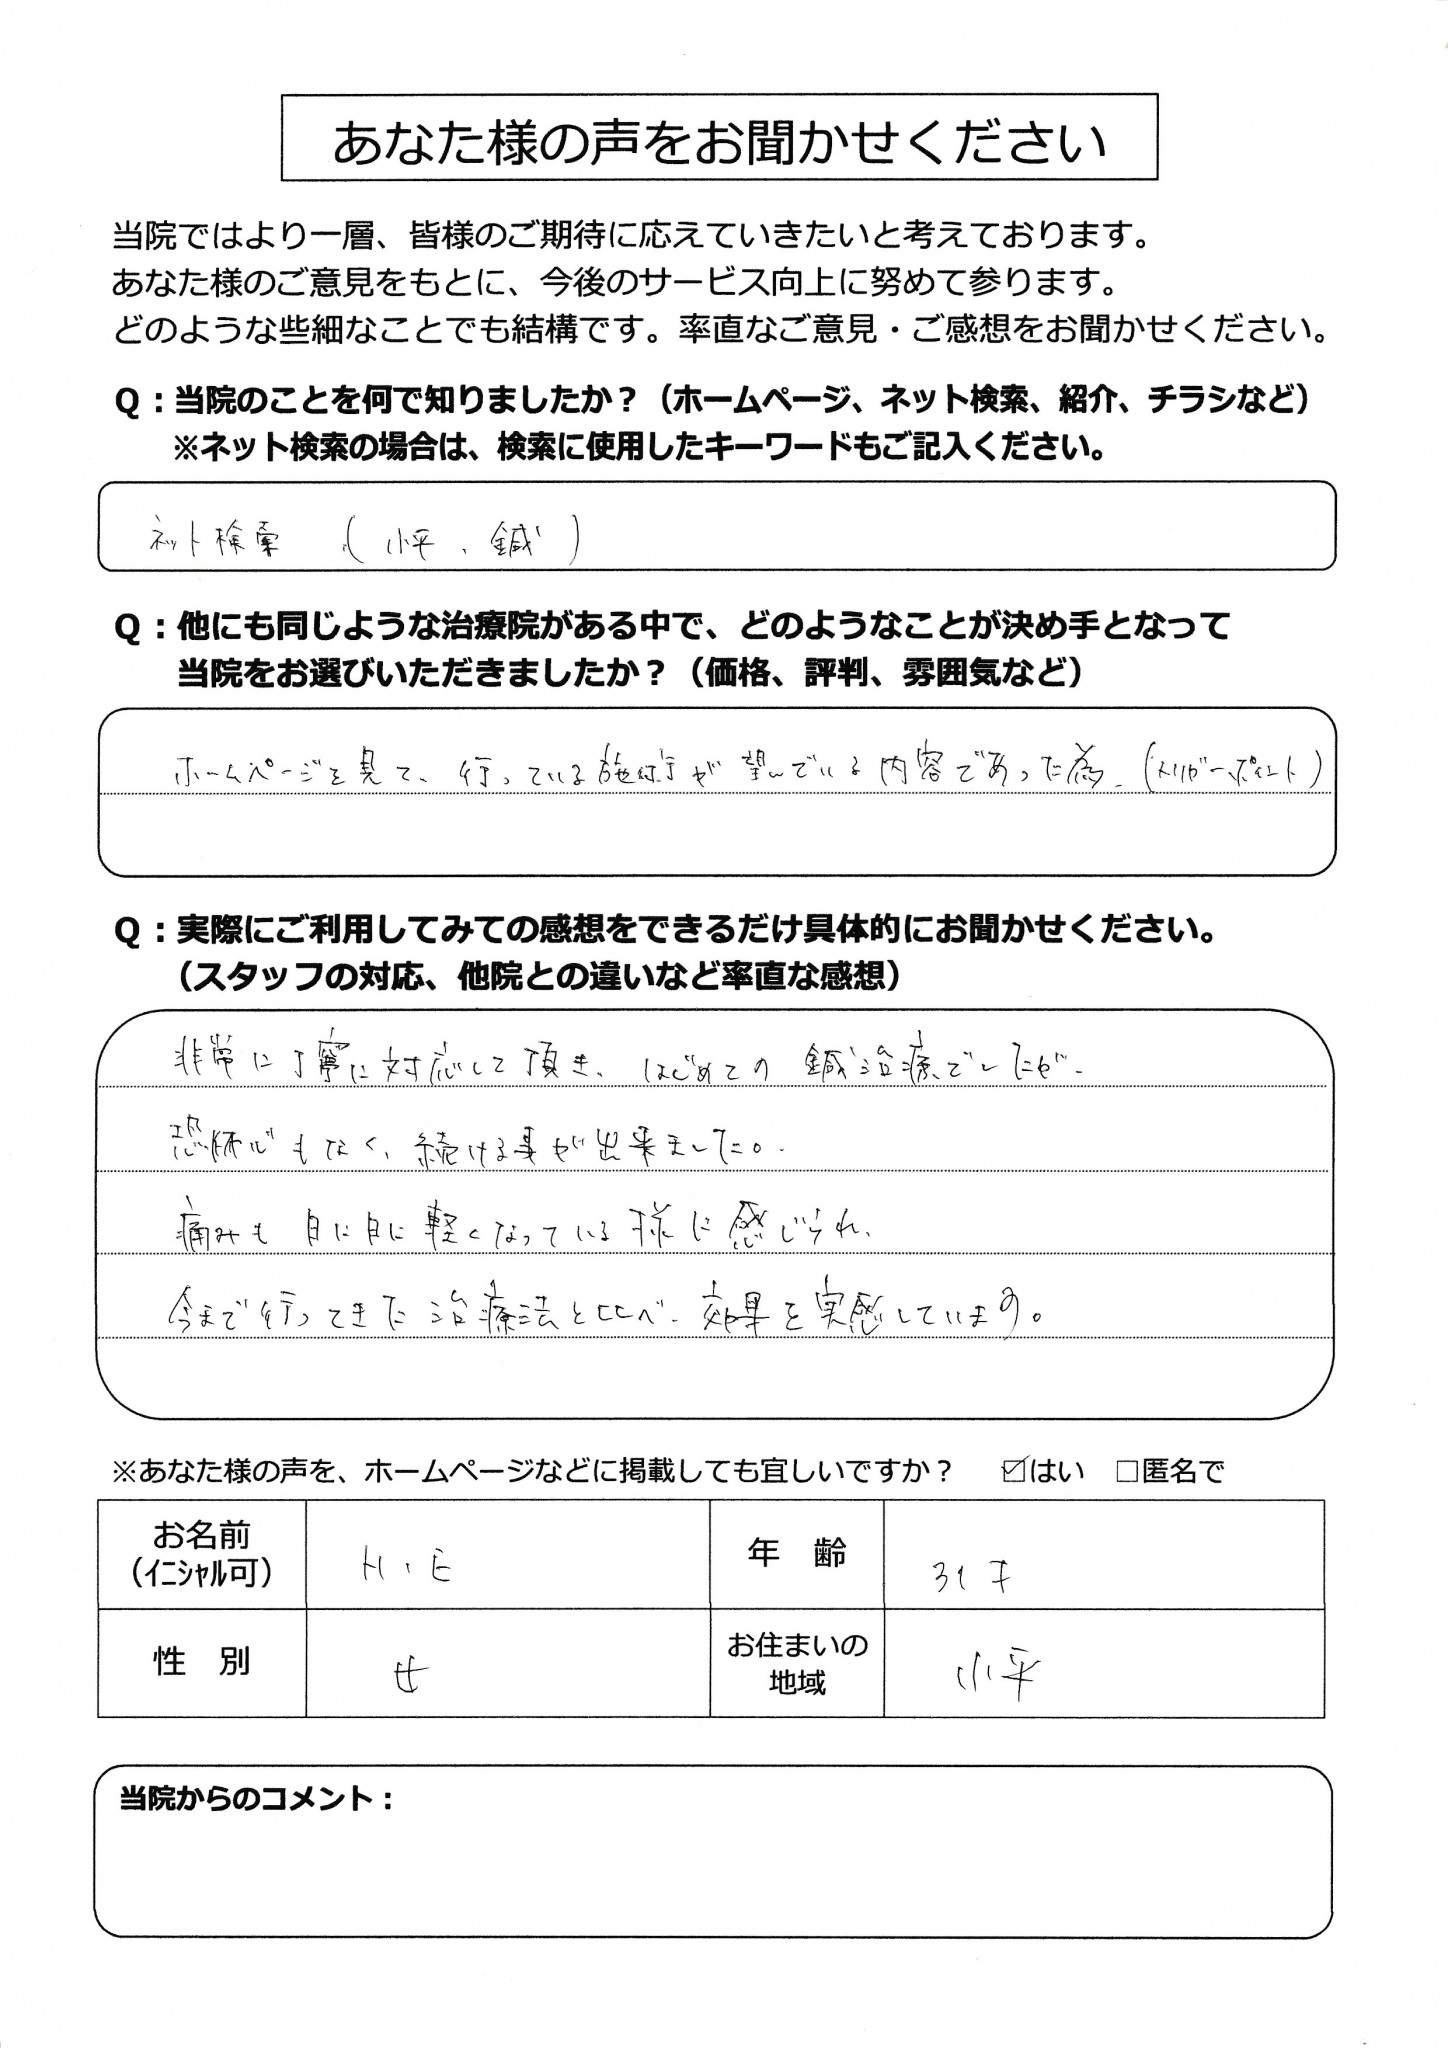 あなた様の声をお聞かせください
当院ではより一層、皆様のご期待に応えていきたいと考えております。
あなた様のご意見をもとに、今後のサービス向上に努めて参ります。
どのような些細なことでも結構です。率直なご意見・ご感想をお聞かせください。
Q：当院のことを何で知りましたか？（ホームページ、ネット検索、紹介、チラシなど）
※ネット検索の場合は、検索に使用したキーワードもご記入ください。
ネット検索 （小平、鍼）
Q：他にも同じような治療院がある中で、どのようなことが決め手となって
当院をお選びいただきましたか？（価格、評判、雰囲気など）
ホームページを見て、行っている施術が望んでいる内容であった為、（トリガーポイント）
Q：実際にご利用してみての感想をできるだけ具体的にお聞かせください。
（スタッフの対応、他院との違いなど率直な感想）
非常に丁寧に対応して頂き、はじめての鍼治療でしたが、
恐怖心もなく、続ける事が出来ました。
痛みも日に日に軽くなっている様に感じられ、
今まで行ってきた治療法と比べ、効果を実感しています。
※あなた様の声を、ホームページなどに掲載しても宜しいですか？ ☑はい □匿名で
お名前 （ｲﾆｼｬﾙ可） H・E 年 齢 31才
性 別 女 お住まいの 地域 小平
当院からのコメント：